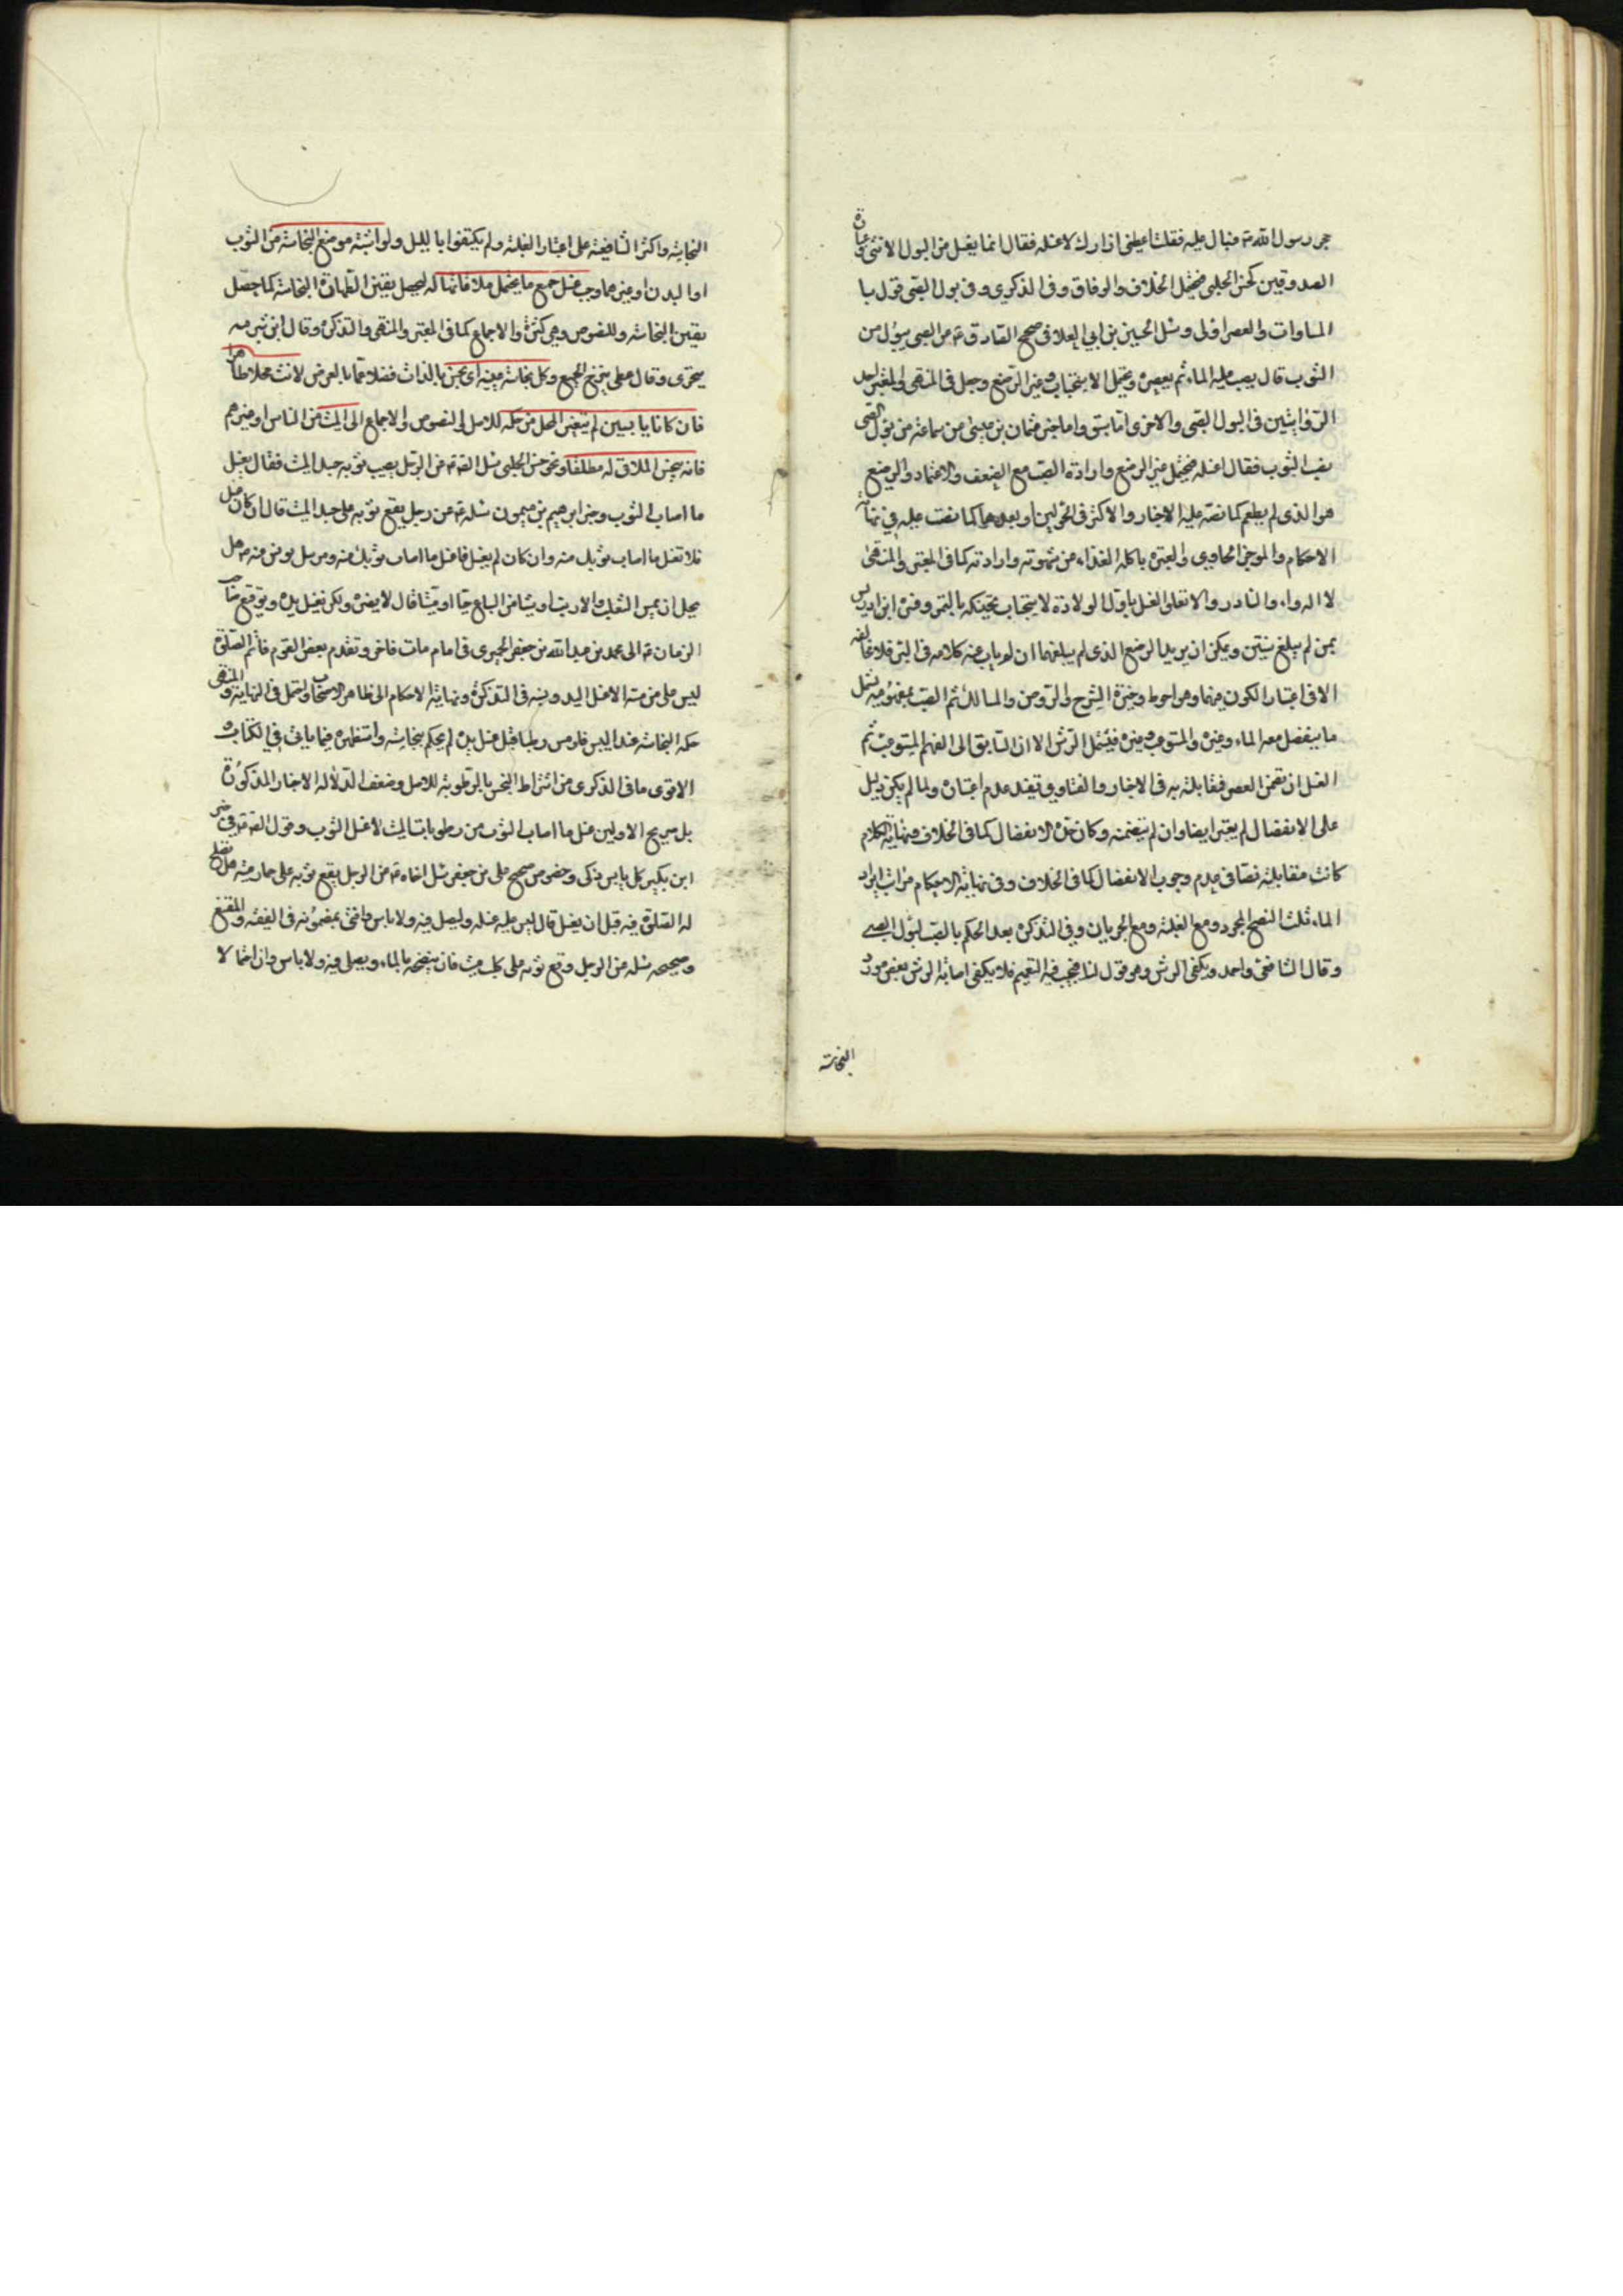 حجر رسول الله ص فبال عليه فقلت اعطني ازارك لاغسله فقال انما يغسل من البول الانثى وعبارة
الصدوقين كحسن الحلبي فيحتمل الخلاف والوفاق وفي الذكرى وفي بول الصبي قول با
المساوات والعصر اولى وسئل الحسين بن ابي العلا في صحيح الصادق ع من الصبي يبول من
الثوب قال يصب عليه الماء ثم يعصره ويحتمل الاستحباب وغير الرضيع وجعل في المنتهى والمعتبر احد
الروايتين في البول الصبي والاخرى ما سبق واما خبر عثمان بن عيسى من سماعة من بول الصبي
يصيب الثوب فقال اغسله فيحتمل غير الرضيع وارادة الصب مع الضعف والاعتماد والرضيع
هو الذي لم يطعم كما نصه عليه الاخبار والاكثر في الحولين او بعدهما كما نصت عليه في نهاية
الاحكام والموجز الحاوي والعبرة باكله الغذاء من شهوته وارادته كما في المعتبر والمنتهى
لا الدواء والنادر والا تعلق الغسل باول الولادة لاستحباب تحنيكه بالتمر وفسره ابن ادريس
بمن لم يبلغ سنتين ويمكن ان يريد الرضيع الذي لم يبلغهما ان لم ياب عنه كلامه في البئر فلا مخالفة
الا في اعتبار الكون فيهما وهو احوط وخيرة الشرح والروض والمسالك ثم الصب بمفهومه يشمل
ما ينفصل معه الماء وغيره والمستوعب وغيره فيشمل الرش الا ان السابق الى الفهم المستوعب ثم
الغسل ان تضمن العصر فمقابلته به في الاخبار والفتاوي تفيد عدم اعتباره ولما لم يكن دليل
على الانفصال لم يعتبر ايضا وان لم يتضمنه وكان حده الانفصال كما في الخلاف ونهاية الكلام
كانت مقابلته نصا في عدم وجوب الانفصال كما في الخلاف وفي نهاية الاحكام مراتب ايراد
الماء ثلث النضح المجرد ومع الغلبة ومع الجريان وفي التذكرة بعد الحكم بالصب لبول الصبي
وقال الشافعي واحمد ويكفي الرش وهو قول لنا فيجب فيه التعميم فلا يكفي اصابة الرش بعض مورد
النجاسة
النجاسة واكثر الشافعية على اعتبار الغلبة ولم يكتفوا بالبلل ولو اشتبه موضع النجاسة من الثوب
او البدن او غيرهما وجب غسل جميع ما يحتمل ملاقاتها له ليحصل يقين الطهارة النجاسة كما حصل
يقين النجاسة وللنصوص وهي كثيرة والاجماع كما في المعتبر والمنتهى والتذكرة وقال ابن شبرمه
يتحرى وقال عطى ينضح الجميع وكل نجاسة عينية اي نجس بالذات فضلا عما بالعرض لاقت محلا طاهرا
فان كانا يابسين لم يتغير المحل من حكمه للاصل والنصوص والاجماع الا الميت من الناس او غيرهم
فانه ينجس الملاقي له مطلقا ونحو حسن الحلبي سئل الصادق ع من الرجل يصيب ثوبه جسد الميت فقال يغسل
ما اصاب الثوب وخبر ابرهيم بن ميمون سئله ع عن رجل يقع ثوبه على جسد الميت قال ان كان غسل
فلا تغسل ما اصاب ثوبك منه وان كان لم يغسل فاغسل ما اصاب ثوبك منه ومرسل يونس منه ع هل
يحل ان يمس الثعلب والارنب او شيئا من السباع حيا او ميتا قال لا يضره ولكن يغسل يده وتوقيع صاحب
الزمان ع الى محمد بن عبد الله بن جعفر الحميري في امام مات فاخر وتقدم بعض القوم فاتم الصلوة
ليس على من مسه الا غسل اليد ونسبه في التذكرة ونهاية الاحكام الى ظاهر الاصحاب واحتمل في النهاية والمنتهى
حكمه النجاسة عند اليبس فلو مس رطبا قبل غسل يده لم يحكم بنجاسته واستظهره فيما ياتي في الكتاب
الاقوى ما في الذكرى من اشتراط التنجس بالرطوبة للاصل وضعف الدلالة الاخبار المذكورة
بل صريح الاولين غسل ما اصاب الثوب من رطوبات الميت لا غسل الثوب وقول الصادق ع في خبر
ابن بكير كل يابس ذكى وخصوص صحيح علي بن جعفر سئل اخاه ع من الرجل يقع ثوبه على حمار ميت هل تصلح
له الصلوة فيه قبل ان يغسل قال ليس عليه غسله وليصل فيه ولا باس وافتى بمضمونه في الفقيه والمقنع
وصحيحه سئله من الرجل وقع ثوبه على كلب ميت قال ينضحه بالماء ويصلي فيه ولا باس وان احتملا